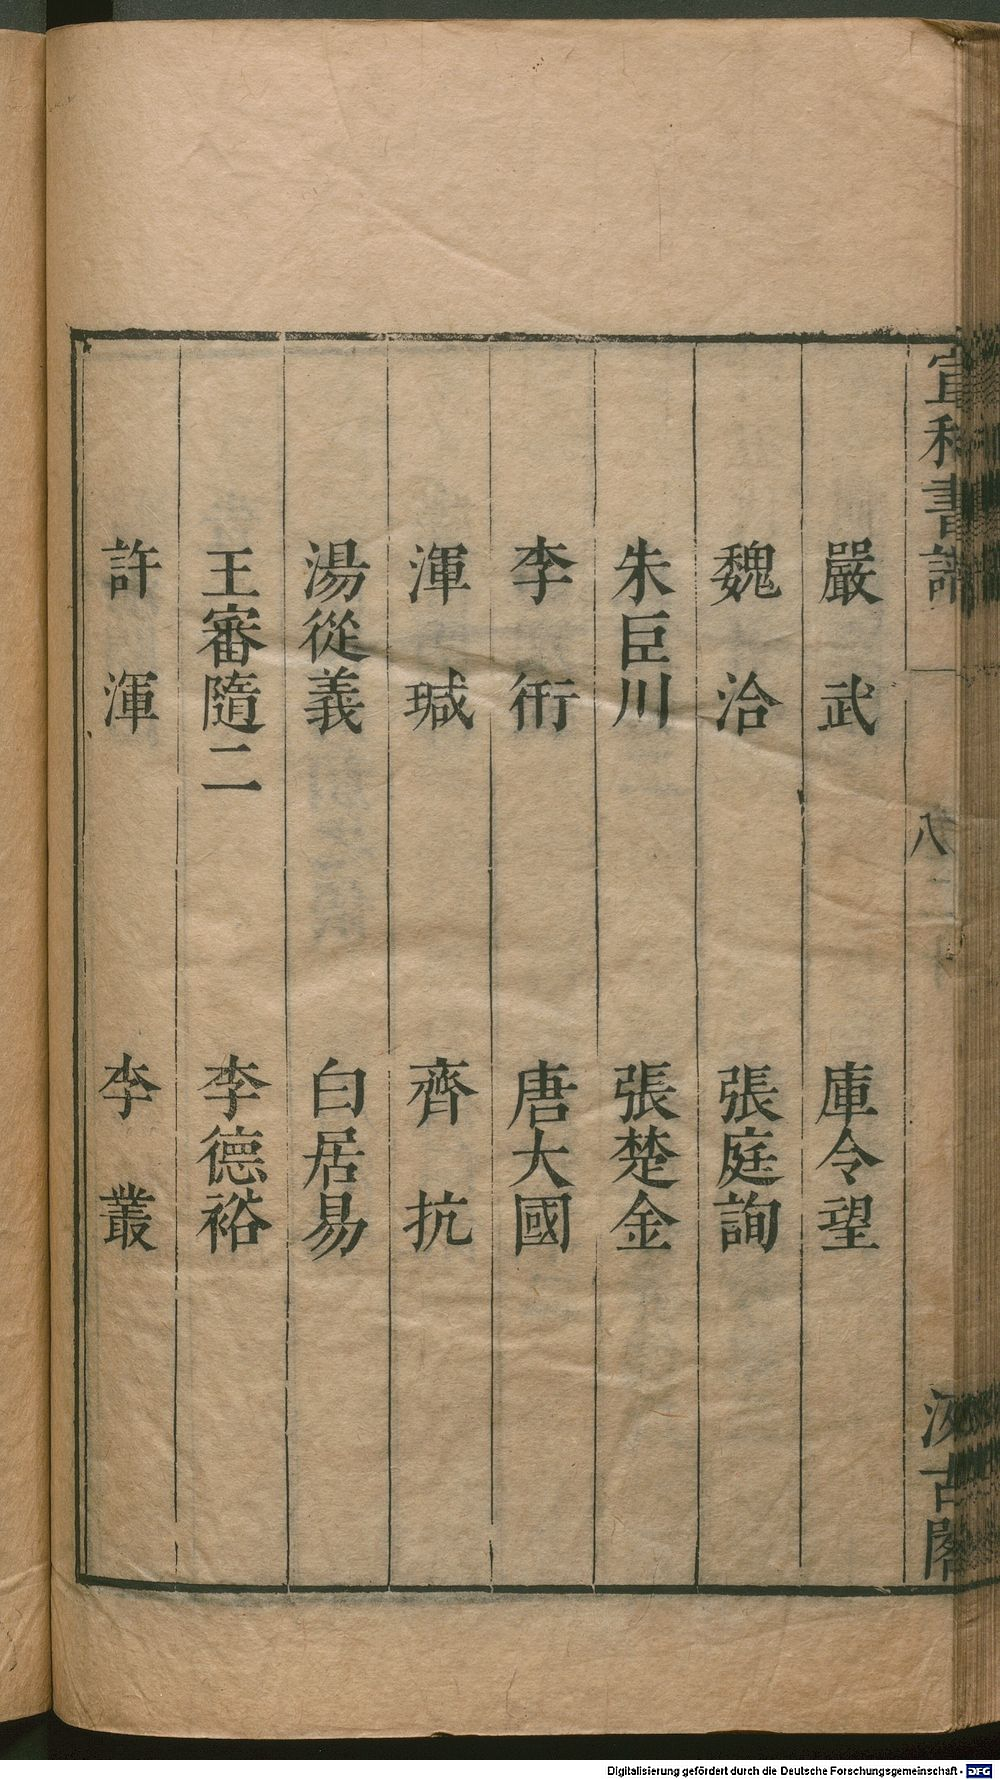 宣和書譜 八 汲古閣
嚴武 庫令望
魏洽 張庭詢
朱臣川 張楚金
李衎 唐大國
渾瑊 齊抗
湯從義 白居易
王審隨二 李德裕
許渾 李叢
Digitalisierung gefördert durch die Deutsche Forschungsgemeinschaft - DFG